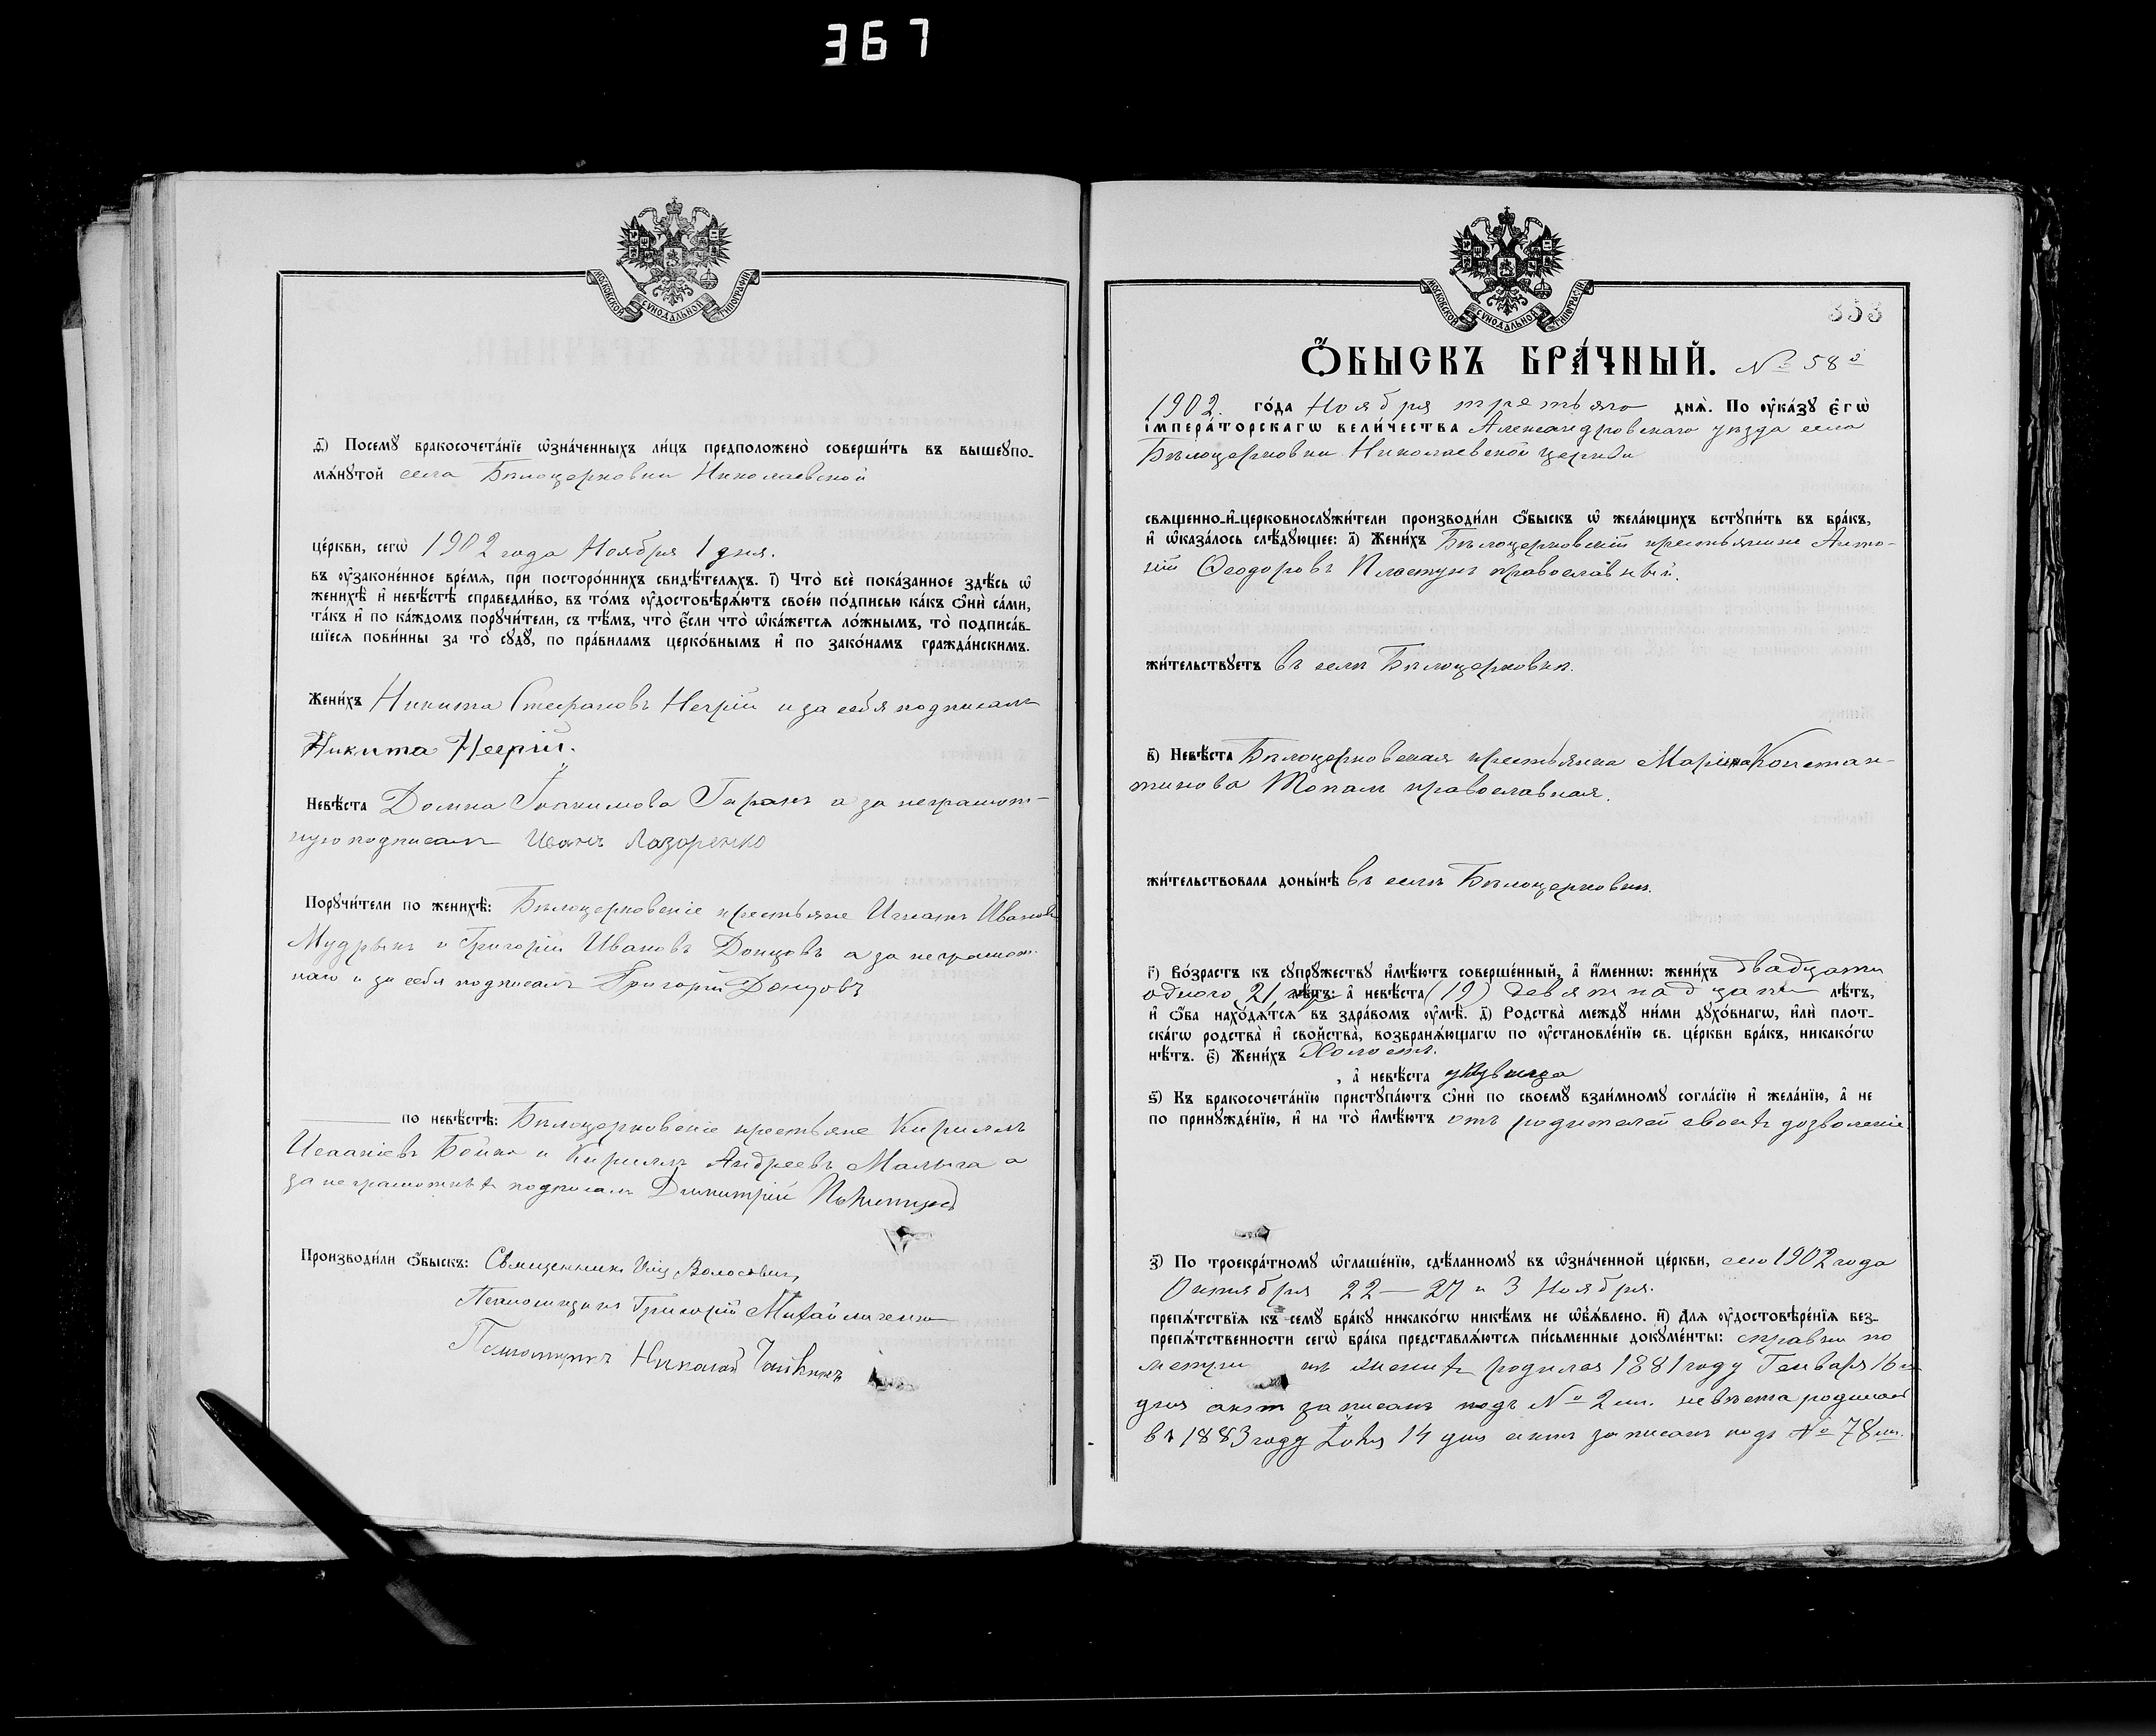 367
МОСКОВСКОЙ СѴНОДАЛЬНОЙ ТИПОГРАФІИ
д҃і) Посемꙋ бракосочета́нїе ѡзна́ченныхъ ли́цъ предположено̀ соверши́ть въ вышеꙋпо-
мѧ́нꙋтой села Бѣлоцерковки Николаевской
це́ркви, сегѡ̀ 1902 года Ноября 1 дня.
въ оу҆зако́ненное вре́мѧ, при посторо́ннихъ свидѣ́телѧхъ. і҃) Что̀ всѐ пока́занное здѣ́сь ѡ҆
женихѣ̀ и҆ невѣ́стѣ справедли́во, въ то́мъ оу҆достовѣрѧ́ютъ свое́ю по́дписью ка́къ ѻ҆нѝ са́ми,
та́къ и҆ по ка́ждомъ порꙋчи́тели, съ тѣ́мъ, что̀ є҆́сли что̀ ѡ҆ка́жетсѧ ло́жнымъ, то̀ подписа́в-
шїесѧ пови́нны за то̀ сꙋдꙋ̀, по пра́виламъ церко́внымъ и҆ по зако́намъ гражда́нскимъ.
Жени́хъ Никита Стефановъ Негрій и за себя подписалъ
Никита Негрій.
Невѣ́ста Домна Іоакимова Гаранъ а за неграмот-
ную подписалъ Иванъ Лазоренко
Порꙋчи́тели по женихѣ̀: Бѣлоцерковскіе крестьяне Игнатъ Ивановъ
Мудрыкъ и Григорій Ивановъ Донцовъ а за неграмот-
наго и за себя подписалъ Григорій Донцовъ
по невѣ́стѣ: Бѣлоцерковскіе крестьяне Кириллъ
Исаакіевъ Бойко и Кириллъ Андреевъ Малыга а
за неграмотныхъ подписалъ Димитрій
Производи́ли ѻ҆́быскъ: Священникъ Волосевичъ
Псаломщикъ Григорій Михайличенко
Псаломщикъ Николай
МОСКОВСКОЙ СѴНОДАЛЬНОЙ ТИПОГРАФІИ
353
Ѻ҆́БЫСКЪ БРА́ЧНЫЙ. № 58й
1902. го́да Ноября третьяго днѧ̀. По оу҆ка́зꙋ є҆гѡ̀
і҆мпера́торскагѡ вели́чества Александровскаго уѣзда села
Бѣлоцерковки Николаевской церкви
свѧщенно-и҆-церковнослꙋжи́тели производи́ли ѻ҆́быскъ ѡ҆ жела́ющихъ встꙋпи́ть въ бра́къ,
и҆ ѡ҆каза́лось слѣ́дꙋющее: а҃) Жени́хъ Бѣлоцерковскій крестьянинъ Анто-
ній Ѳеодоровъ Пластунъ православный.
жи́тельствꙋетъ въ селѣ Бѣлоцерковкѣ.
в҃) Невѣ́ста Бѣлоцерковская крестьянка Марина Констан-
тинова Топалъ православная.
жи́тельствовала доны́нѣ въ селѣ Бѣлоцерковкѣ.
г҃) Во́зрастъ къ сꙋпрꙋ́жествꙋ и҆мѣ́ютъ соверше́нный, а҆ и҆́меннѡ: жени́хъ двадцати
одного 21 лѣ́тъ: а҆ невѣ́ста (19) девятнадцати лѣ́тъ,
и҆ ѻ҆́ба нахо́дѧтсѧ въ здра́вомъ оу҆мѣ̀. д҃) Родства̀ междꙋ̀ ни́ми дꙋхо́внагѡ, и҆лѝ плот-
ска́гѡ родства̀ и҆ сво́йства, возбранѧ́ющагѡ по оу҆становле́нїю св. це́ркви бра́къ, никако́гѡ
нѣ́тъ. є҃) Жени́хъ Холостъ.
, а҆ невѣ́ста дѣвица
ѕ҃) Къ бракосочета́нїю пристꙋпа́ютъ ѻ҆нѝ по своемꙋ̀ взаи́мномꙋ согла́сїю и҆ жела́нїю, а҆ не
по принꙋжде́нїю, и҆ на то̀ и҆мѣ́ютъ отъ родителей своихъ дозволеніе
з҃) По троекра́тномꙋ ѡ҆глаше́нїю, сдѣ́ланномꙋ въ ѡ҆зна́ченной це́ркви, сего 1902 года
Октября 22 — 27 и 3 Ноября.
препѧ́тствїѧ къ семꙋ̀ бра́кꙋ никако́гѡ никѣ́мъ не ѡ҆б̾ѧ́влено. и҃) Длѧ оу҆достовѣре́нїѧ без-
препѧ́тственности сегѡ̀ бра́ка представлѧ́ютсѧ пи́сьменные докꙋме́нты: справки по
женихъ родился 1881 году Генваря 16
дня актъ записанъ подъ № 2мъ. невѣста родилась
въ 1883 году Іюля 14 дня актъ записанъ подъ № 78мъ.